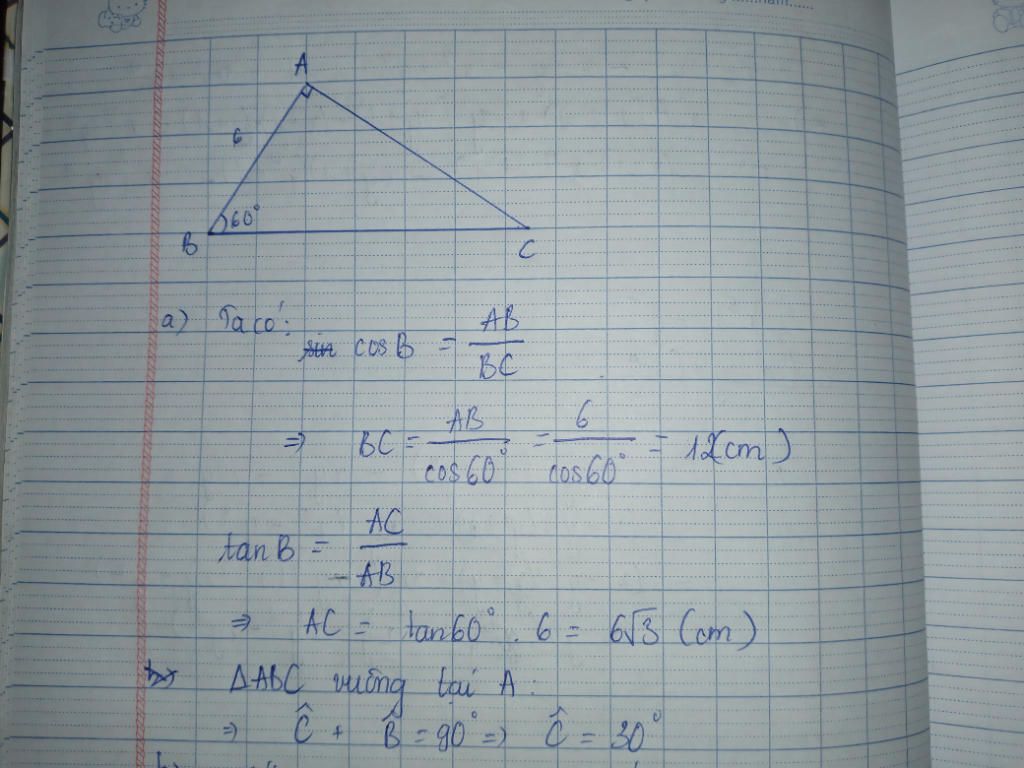 A
6
60°
B
C
a) Ta có:
cos B = AB/BC
=> BC = AB/cos60° = 6/cos60° = 12(cm)
tan B = AC/AB
=> AC = tan60° . 6 = 6√3 (cm)
ΔABC vuông tại A :
=> Ĉ + B̂ = 90° => Ĉ = 30°